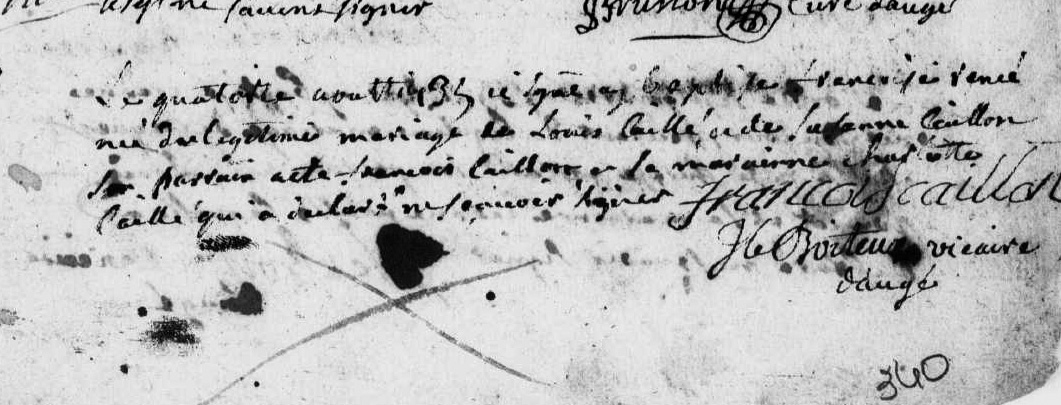 savent signer Brunon Curé daugé
Le quatorze aoust 1735 jé baptise francoise renée
née du legitime mariage de Louis Caillé et de susanne Caillon
son parrain a eté francois Caillon et sa marainne charlotte
Caillé qui a declaré ne scavoir signer francois caillon
Boiteux vicaire
daugé
340